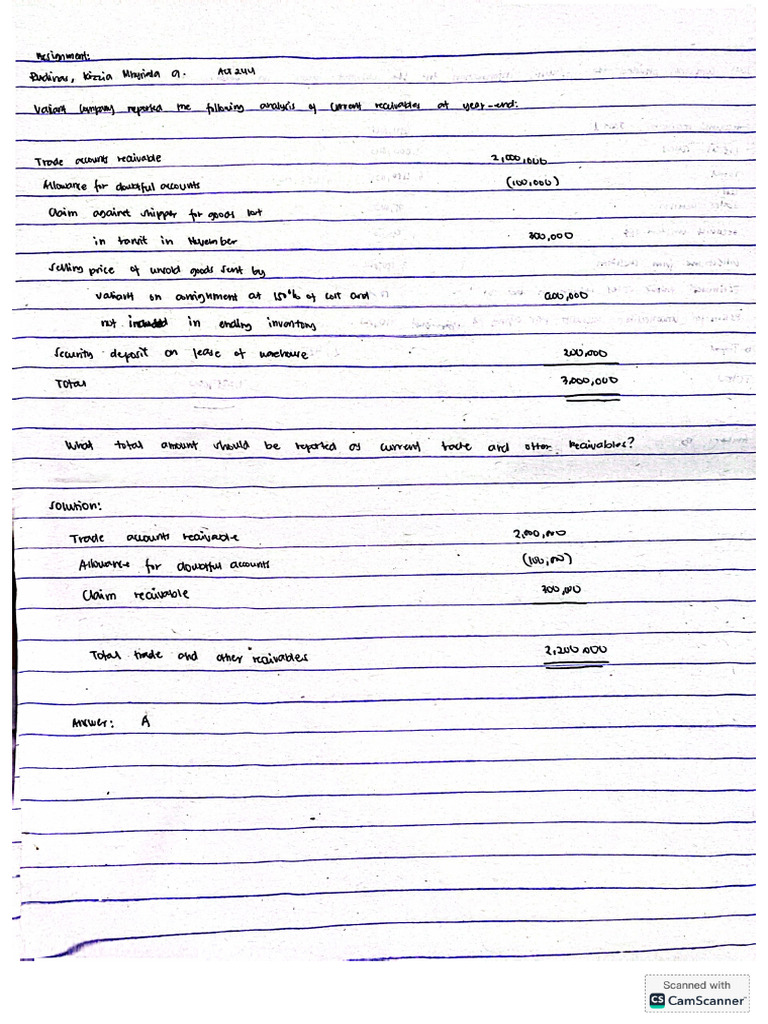 Assignment:
Rudinas, Kizzia Mhyrinda A. ACC 244
Valiant Company reported the following analysis of current receivables at year-end:
Trade accounts receivable 2,000,000
Allowance for doubtful accounts (100,000)
Claim against shipper for goods lost
in transit in November 300,000
Selling price of unsold goods sent by
Valiant on consignment at 150% of cost and 600,000
not included in ending inventory
Security deposit on lease of warehouse 200,000
Total 3,000,000
What total amount should be reported as current trade and other receivables?
Solution:
Trade accounts receivable 2,000,000
Allowance for doubtful accounts (100,000)
Claim receivable 300,000
Total trade and other receivables 2,200,000
Answer: A
Scanned with
CS CamScanner